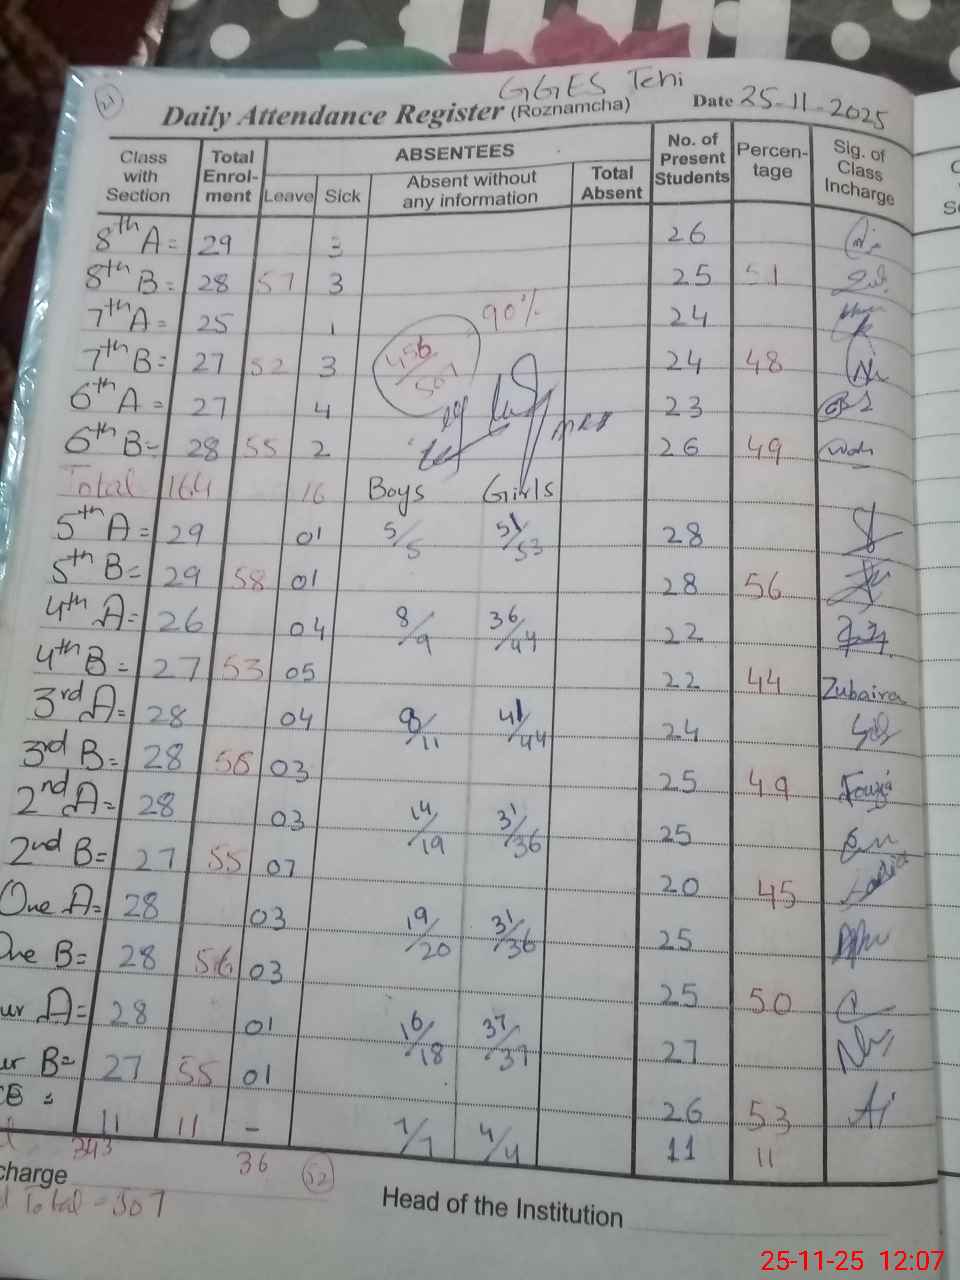 21
GGES Tehi
Daily Attendance Register (Roznamcha) Date 25-11-2025
Class with Section Total Enrol-ment ABSENTEES Leave Sick Absent without any information Total Absent No. of Present Students Percen-tage Sig. of Class Incharge
8th A= 29 3 26
8th B= 28 57 3 25 51
7th A= 25 1 90% 24
7th B= 27 52 3 456/507 24 48
6th A= 27 4 23
6th B= 28 55 2 26 49
Total 164 16 Boys Girls
5th A= 29 01 5/5 51/53 28
5th B= 29 58 01 28 56
4th A= 26 04 8/9 36/44 22
4th B= 27 53 05 22 44 Zubaira
3rd A= 28 04 8/11 41/44 24
3rd B= 28 56 03 25 49 Fouzia
2nd A= 28 03 14/19 31/36 25
2nd B= 27 55 07 20 45
One A= 28 03 19/20 31/36 25
One B= 28 56 03 25 50
ur A= 28 01 16/18 37/37 27
ur B= 27 55 01 26 53
CE = 11 11 - 7/7 4/4 11 11
343 36 52
charge
Total = 507
Head of the Institution
25-11-25 12:07